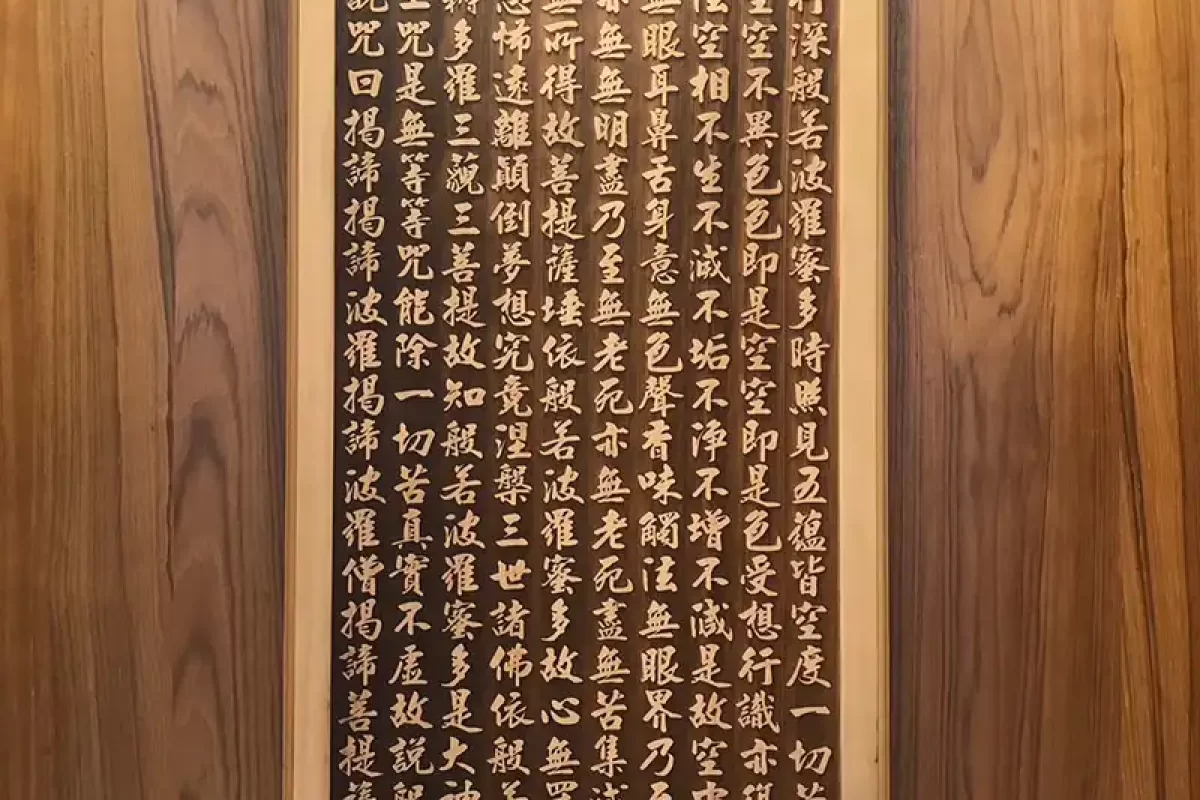 行深般若波羅蜜多時照見五蘊皆空度一切苦
空空不異色色即是空空即是色受想行識亦復
法空相不生不滅不垢不淨不增不減是故空中
無眼耳鼻舌身意無色聲香味觸法無眼界乃至
亦無無明盡乃至無老死亦無老死盡無苦集滅
無所得故菩提薩埵依般若波羅蜜多故心無罣
恐怖遠離顛倒夢想究竟涅槃三世諸佛依般若
耨多羅三藐三菩提故知般若波羅蜜多是大神
上咒是無等等咒能除一切苦真實不虛故説般
説咒曰揭諦揭諦波羅揭諦波羅僧揭諦菩提薩